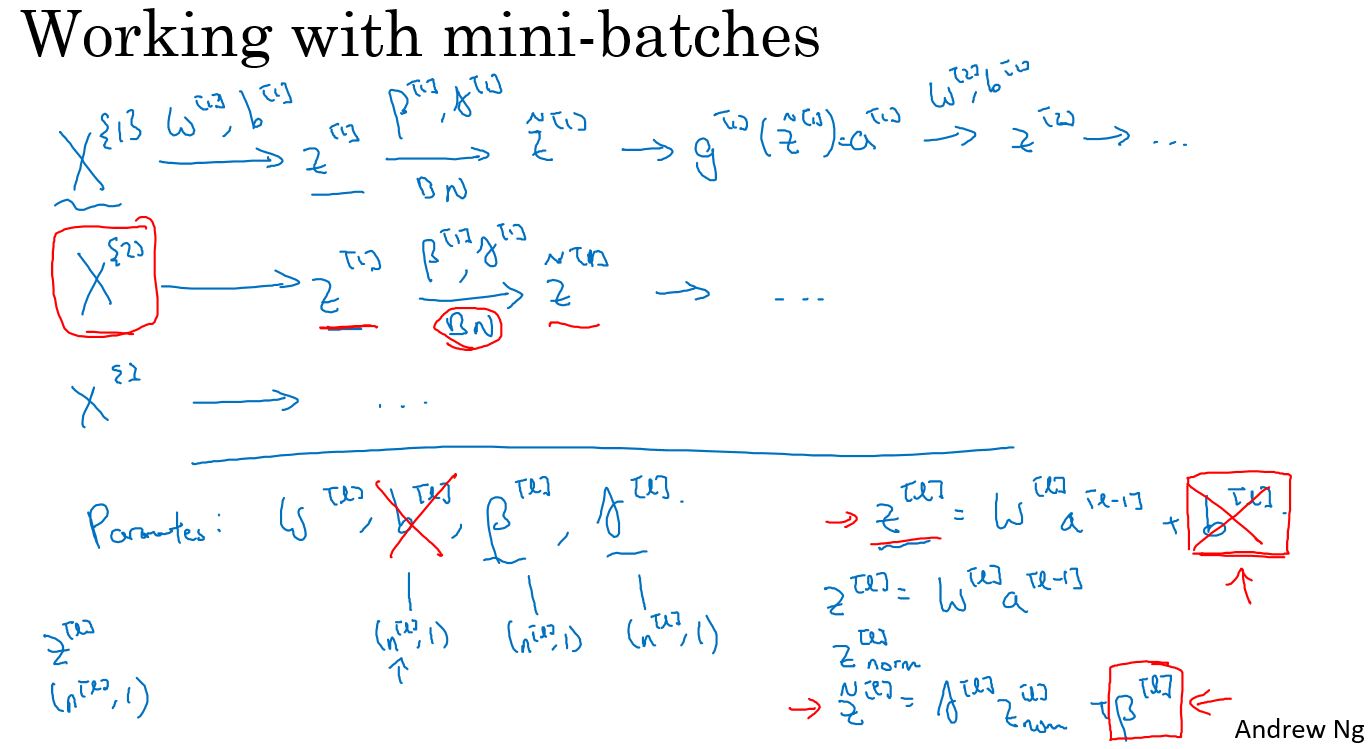 Working with mini-batches
X^{1} W^[1], b^[1] → z^[1] β^[1], γ^[1] → BN z̃^[1] → g^[1](z̃^[1]) = a^[1] W^[2], b^[2] → z^[2] → ...
X^{2} → z^[1] β^[1], γ^[1] → BN z̃^[1] → ...
X^{} → ...
Parameters: W^[l], b^[l], β^[l], γ^[l].
(n^[l], 1) (n^[l], 1) (n^[l], 1)
z^[l]
(n^[l], 1)
→ z^[l] = W^[l] a^[l-1] + b^[l].
z^[l] = W^[l] a^[l-1]
z^[l] norm
→ z̃^[l] = γ^[l] z^[l] norm + β^[l] ←
Andrew Ng